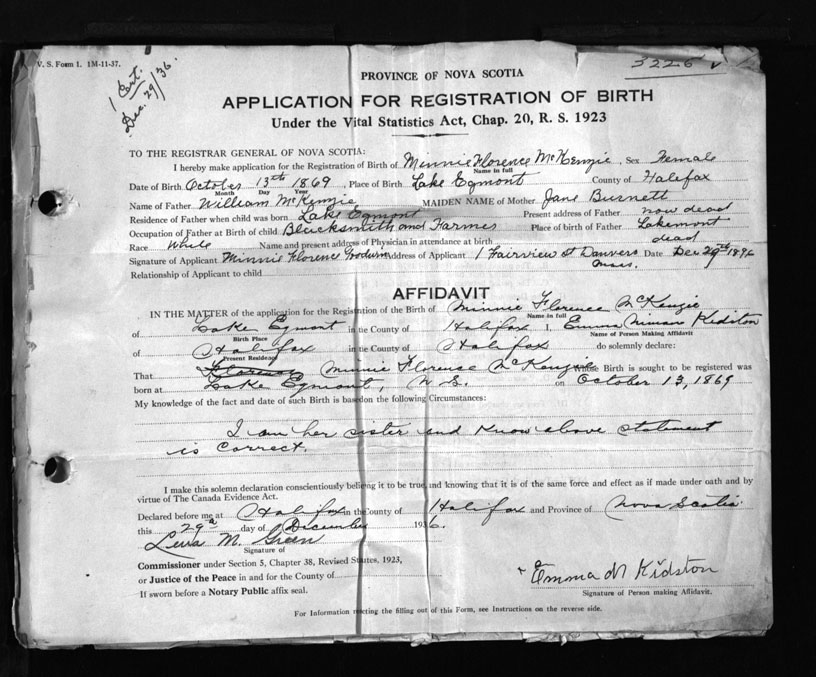 V. S. Form 1. 1M-11-37.
1 Cert.
Dec. 29/36.
3226
PROVINCE OF NOVA SCOTIA
APPLICATION FOR REGISTRATION OF BIRTH
Under the Vital Statistics Act, Chap. 20, R. S. 1923
TO THE REGISTRAR GENERAL OF NOVA SCOTIA:
I hereby make application for the Registration of Birth of Minnie Florence McKenzie, Sex Female
Name in full
Date of Birth October 13th 1869, Place of Birth Lake Egmont County of Halifax
Month Day Year
Name of Father William McKenzie MAIDEN NAME of Mother Jane Burnett
Residence of Father when child was born Lake Egmont Present address of Father now dead
Occupation of Father at Birth of child Blacksmith and Farmer Place of birth of Father Lakemont
Race White Name and present address of Physician in attendance at birth dead
Signature of Applicant Minnie Florence Goodwin Address of Applicant 1 Fairview St Danvers Date Dec 29th 1896
Mass.
Relationship of Applicant to child
AFFIDAVIT
IN THE MATTER of the application for the Registration of the Birth of Minnie Florence McKenzie
Name in full
of Lake Egmont in the County of Halifax I, Emma Kidston
Birth Place Name of Person Making Affidavit
of Halifax in the County of Halifax do solemnly declare:
Present Residence
That Florence Minnie Florence McKenzie Whose Birth is sought to be registered was
born at Lake Egmont, N S. on October 13, 1869
My knowledge of the fact and date of such Birth is based on the following Circumstances:
I am her sister and know above statement
is correct.
I make this solemn declaration conscientiously believing it to be true, and knowing that it is of the same force and effect as if made under oath and by
virtue of The Canada Evidence Act.
Declared before me at Halifax in the County of Halifax and Province of Nova Scotia
this 29 day of December 1936.
M. Green
Signature of
Commissioner under Section 5, Chapter 38, Revised Statutes, 1923,
or Justice of the Peace in and for the County of
If sworn before a Notary Public affix seal.
Emma M Kidston
Signature of Person making Affidavit.
For Information respecting the filling out of this Form, see Instructions on the reverse side.